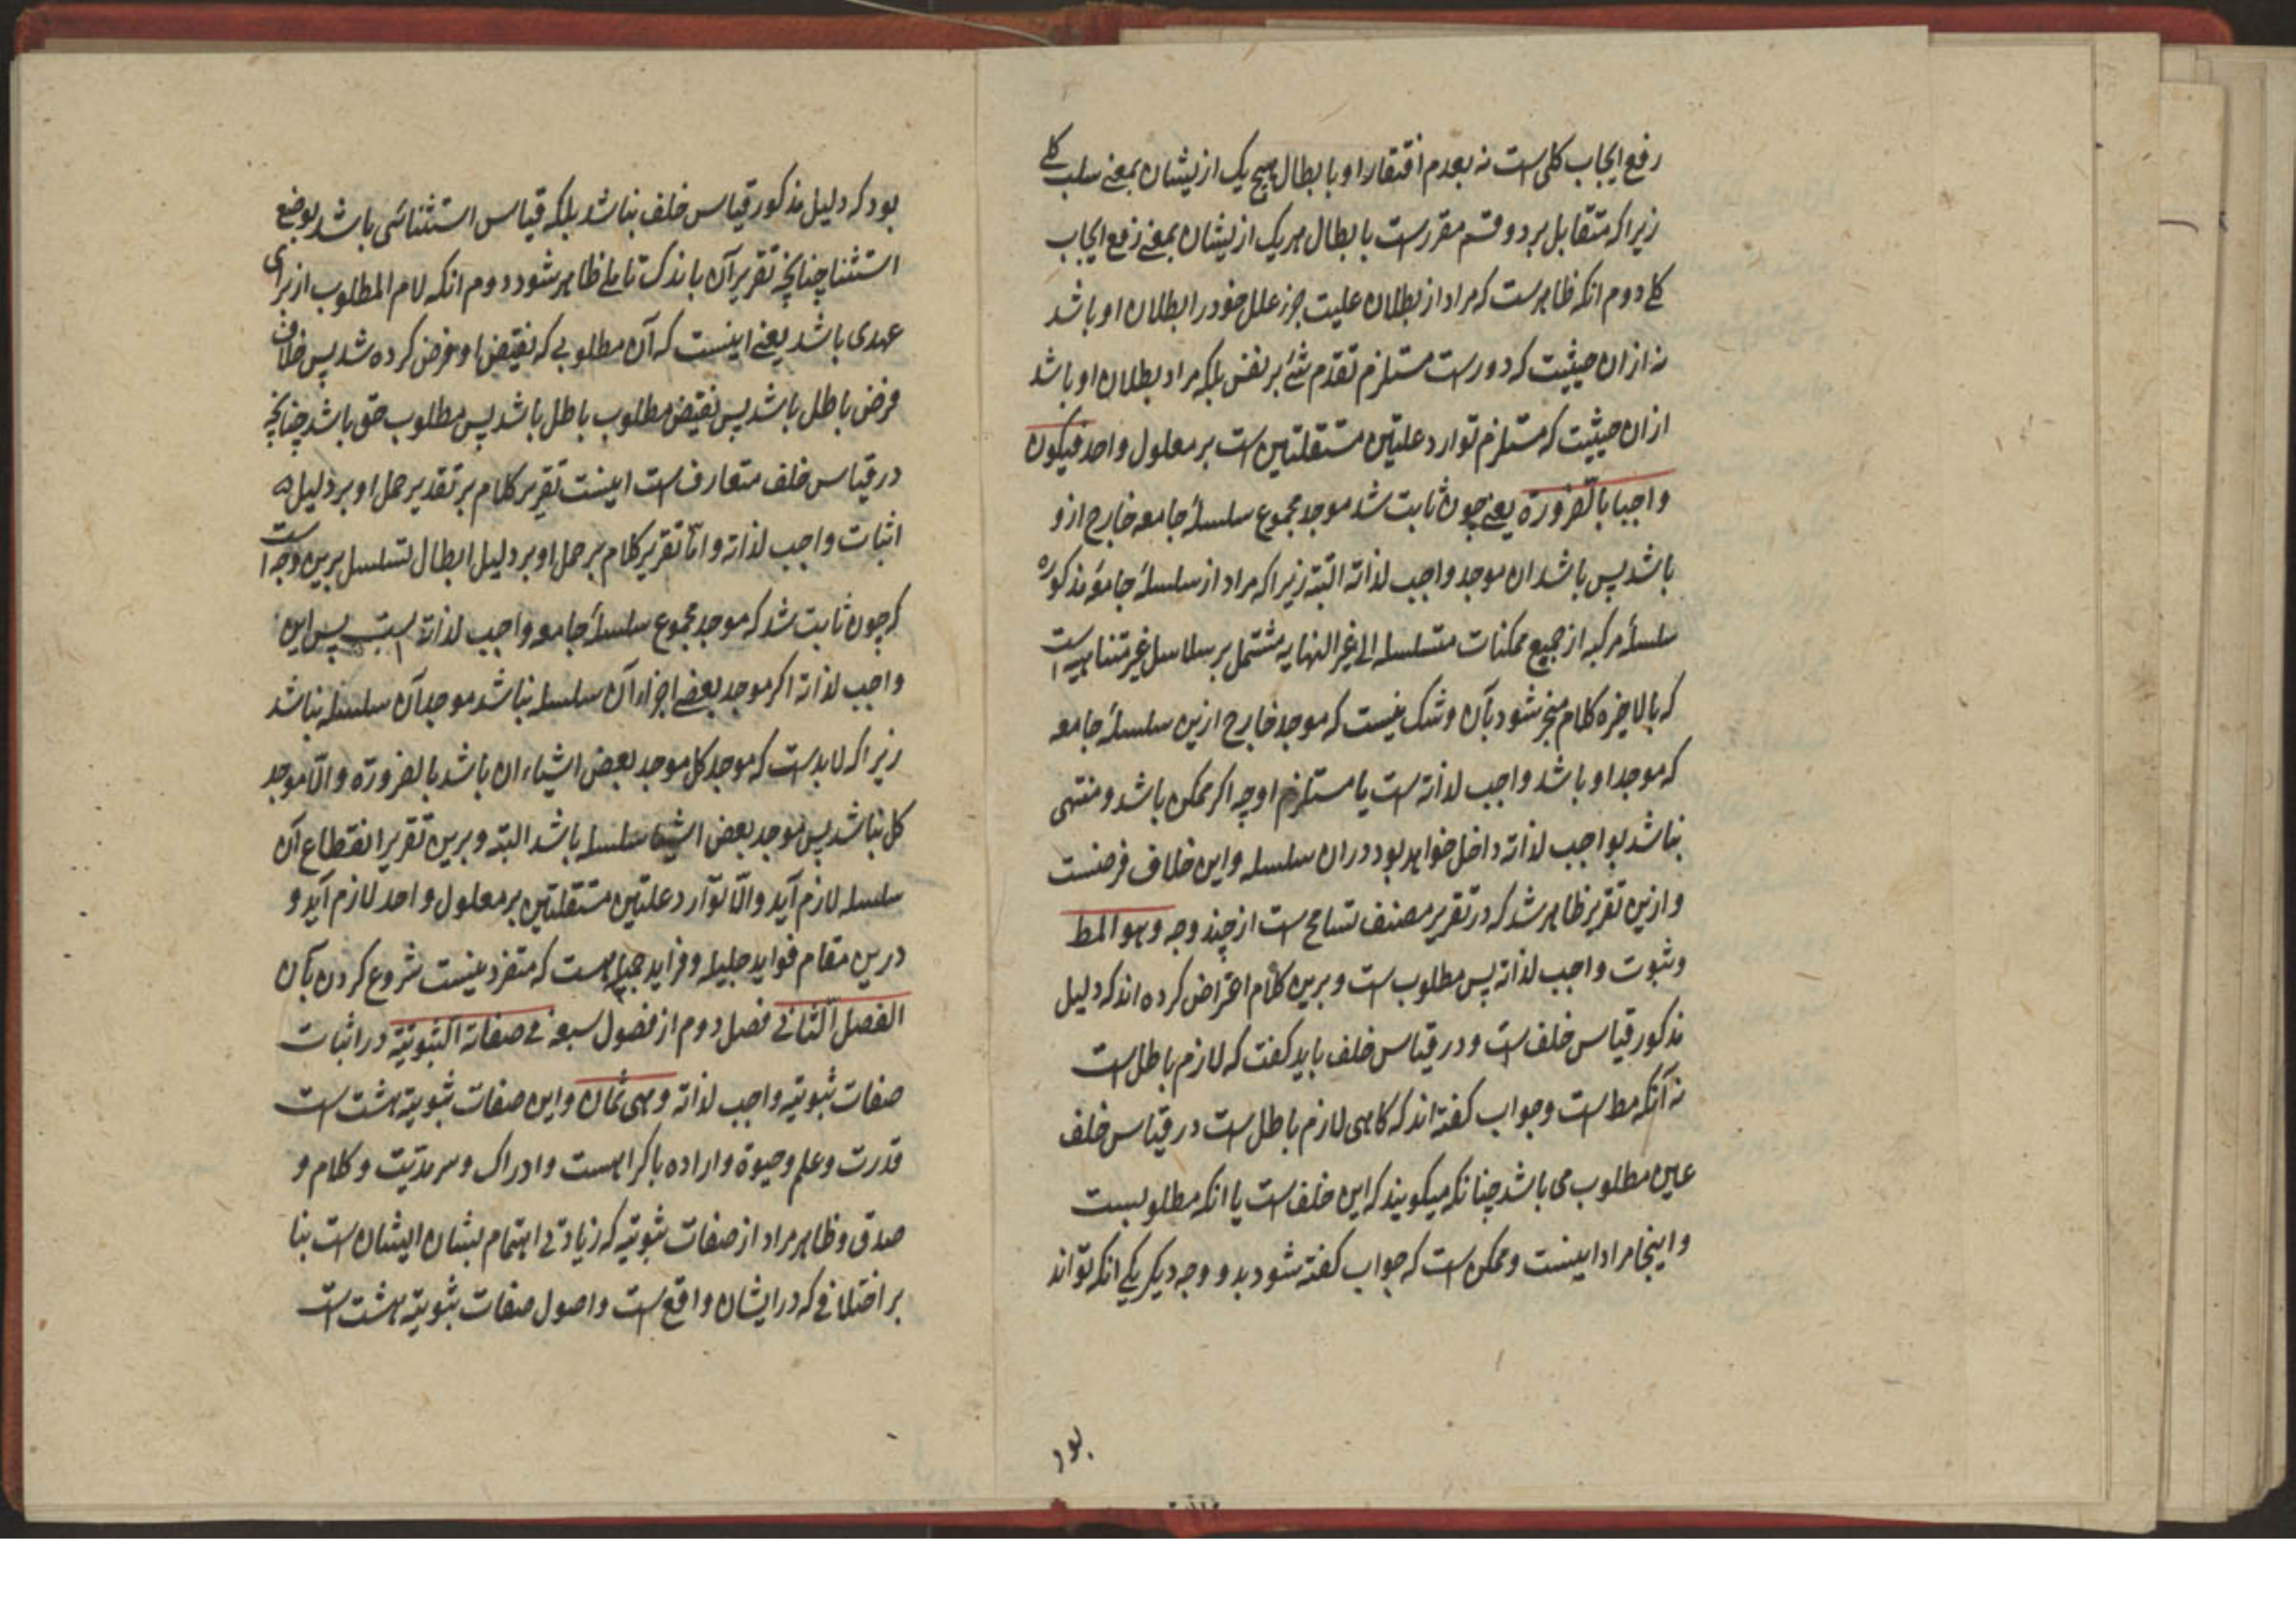 رفع ایجاب کلی است نه بعدم افتقار او بابطال هیچ یک ازیشان بمعنی سلب کلی
زیرا که متقابل بر دو قسم مقررست بابطال هر یک ازیشان بمعنی رفع ایجاب
کلی دوم انکه ظاهرست که مراد از بطلان علیت جزء علل خود را بطلان او باشد
نه ازان حیثیت که دورست مستلزم تقدم شئ بر نفس بلکه مراد بطلان او باشد
ازان حیثیت که مستلزم توارد علتین مستقلتین است بر معلول واحد فیکون
واجبا بالضرورة یعنی چون ثابت شد موجد مجموع سلسلهٔ جامعه خارج ازو
باشد پس باشد ان موجد واجب لذاته البته زیرا که مراد از سلسلهٔ جامعهٔ مذکوره
سلسلهٔ مرکبه از جمیع ممکنات متسلسله الی غیر النهایه مشتمل بر سلاسل غیر متناهیه است
که بالاخره کلام منجر شود بآن و شک نیست که موجد خارج ازین سلسلهٔ جامعه
که موجد او باشد واجب لذاته است یا مستلزم او چه اکر ممکن باشد و منتهی
نباشد بواجب لذاته داخل خواهد بود دران سلسله و این خلاف فرضست
و ازین تقریر ظاهر شد که در تقریر مصنف تسامح است از چند وجه وهو المط
و ثبوت واجب لذاته پس مطلوب است و برین کلام اعتراض کرده اند که دلیل
مذکور قیاس خلف است و در قیاس خلف باید کفت که لازم باطل است
نه آنکه مط است و جواب کفته اند که کاهی لازم باطل است در قیاس خلف
عین مطلوب می باشد چنانکه میکویند که این خلف است یا انکه مطلوبست
و اینجا مراد اینست و ممکن است که جواب کفته شود بدو وجه دیکر یکی انکه تواند
بود
بود که دلیل مذکور قیاس خلف نباشد بلکه قیاس استثنائی باشد بوضع
استثنا چنانچه تقریر آن باندک تاملی ظاهر شود دوم انکه لام المطلوب از برای
عهدی باشد یعنی اینست که آن مطلوبی که نقیض او فرض کرده شد پس خلاف
فرض باطل باشد پس نقیض مطلوب باطل باشد پس مطلوب حق باشد چنانچه
در قیاس خلف متعارف است اینست تقریر کلام بر تقدیر حمل او بر دلیل
اثبات واجب لذاته و امّا تقریر کلام بر حمل او بر دلیل ابطال تسلسل برین وجه است
که چون ثابت شد که موجد مجموع سلسلهٔ جامعه واجب لذاته است پس این
واجب لذاته اکر موجد بعضی اجزاء آن سلسله نباشد موجد آن سلسله نباشد
زیرا که لابدست که موجد کل موجد بعض اشیاء ان باشد بالضرورة و الّا موجد
کل نباشد پس موجد بعض اشیا سلسله باشد البته و برین تقریر انقطاع آن
سلسله لازم آید و الّا توارد علتین مستقلتین بر معلول واحد لازم آید و
درین مقام فواید جلیله و فراید جمیله هست که متفرد نیست شروع کردن بآن
الفصل الثانی فصل دوم از فصول سبعه فی صفاته الثبوتیة در اثبات
صفات ثبوتیه واجب لذاته وهی ثمان و این صفات ثبوتیه هشت است
قدرت و علم و حیوة و اراده با کراهست و ادراک و سرمدیّت و کلام و
صدق و ظاهر مراد از صفات ثبوتیه که زیادتی اهتمام بشان ایشان است بنا
بر اختلافی که در ایشان واقع است و اصول صفات ثبوتیه هشت است